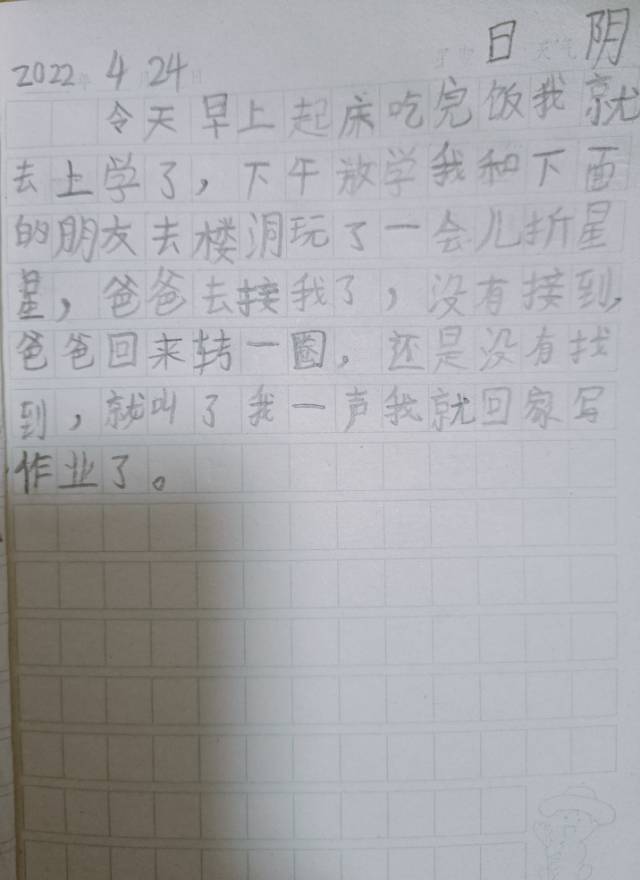 2022年 4 24日 日 天气 阴
令天早上起床吃完饭我就
去上学了，下午放学我和下面
的朋友去楼洞玩了一会儿折星
星，爸爸去接我了，没有接到，
爸爸回来转一圈，还是没有找
到，就叫了我一声我就回家写
作业了。